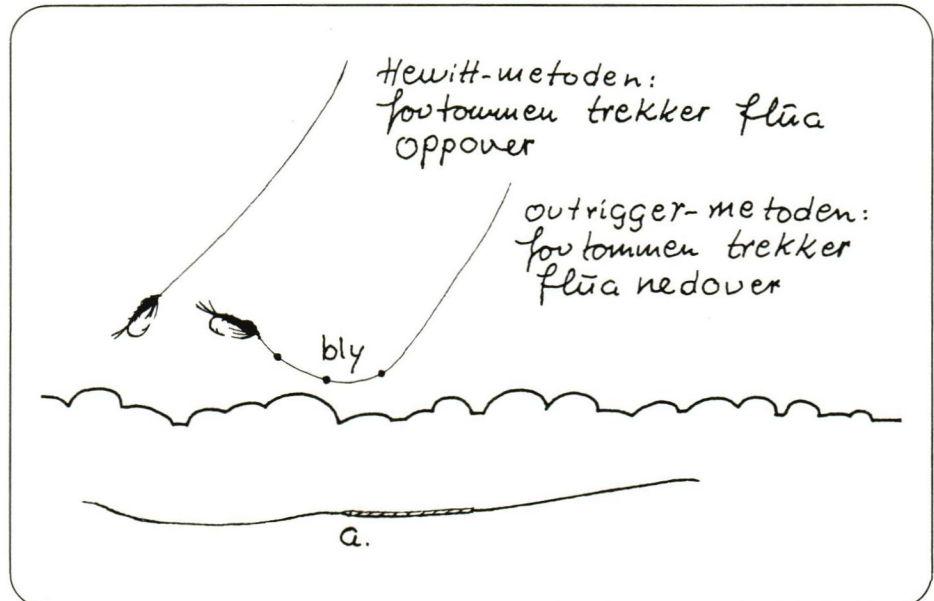 Hewitt-metoden:
fortommen trekker flua
oppover
outrigger-metoden:
fortommen trekker
flua nedover
bly
a.